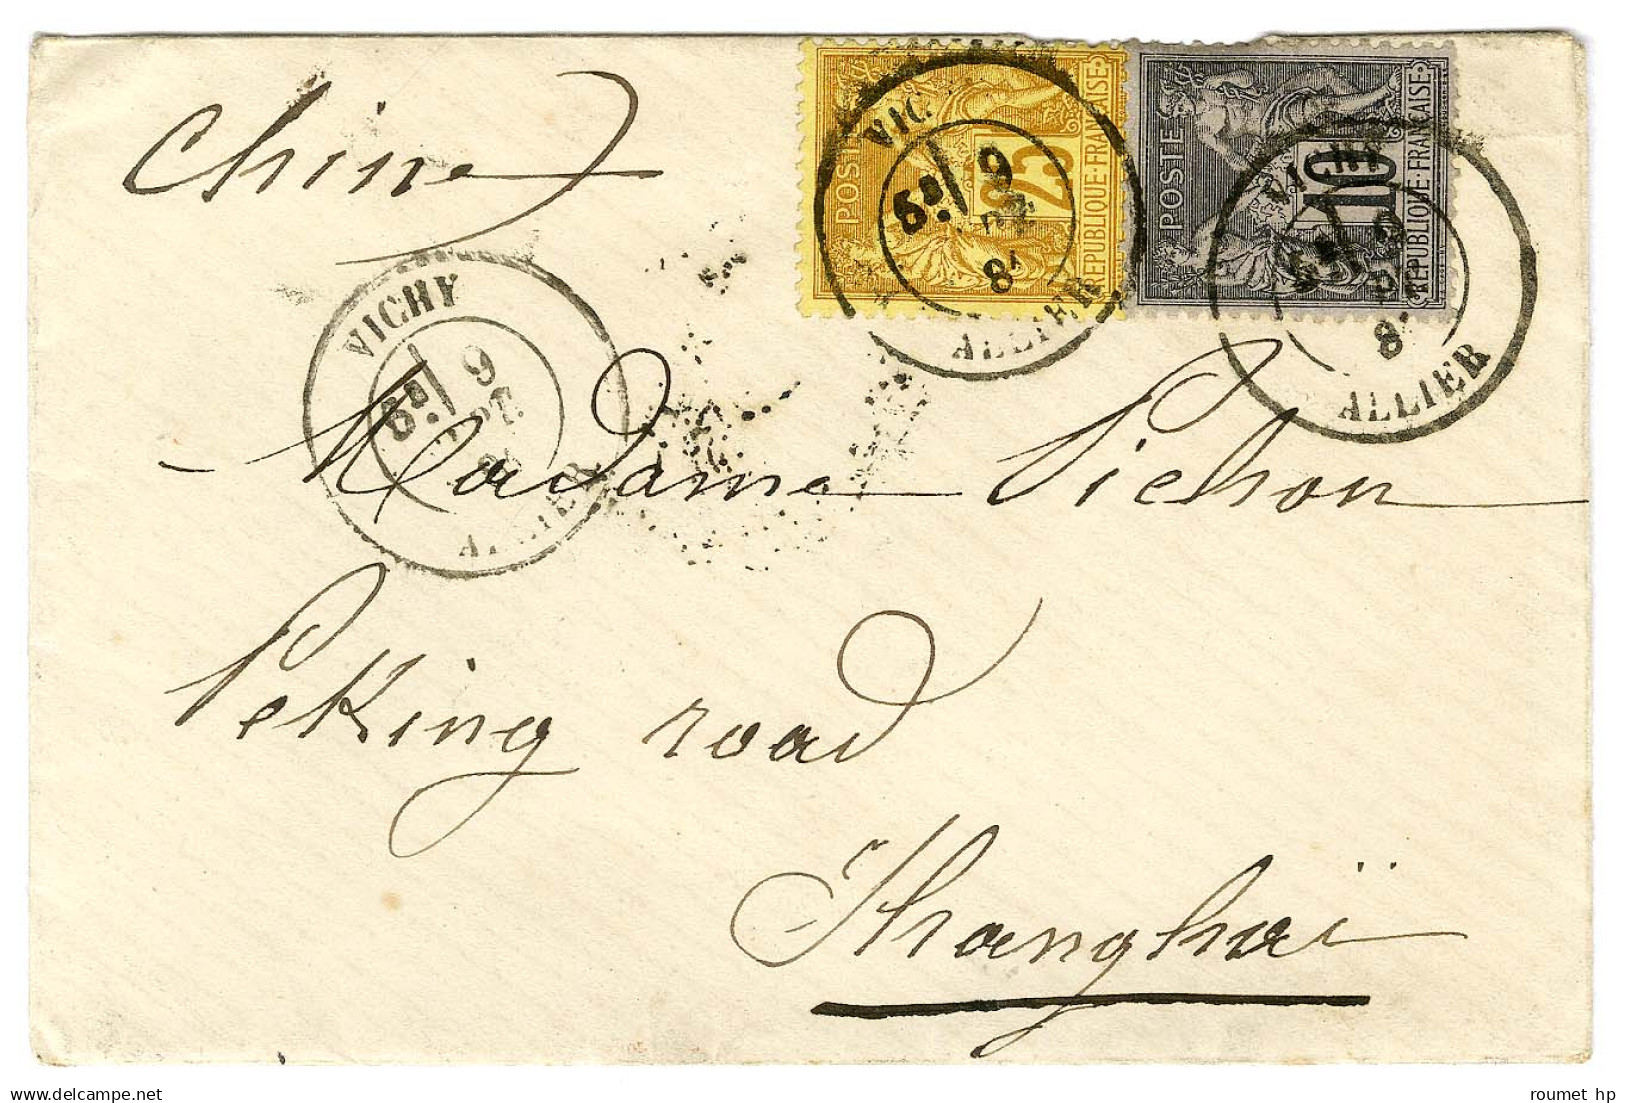 Chine
POSTES
25
REPUBLIQUE·FRANÇAISE
POSTES
10
REPUBLIQUE·FRANÇAISE
ALLIER
ALLIER
VICHY
6E/
9
ALLIER
Madame Pichon
Peking road
Shanghaï
roumet hp